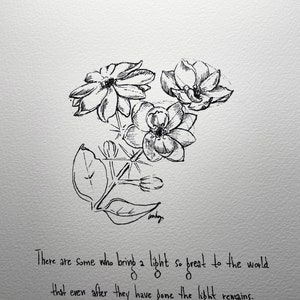 There are some who bring a light so great to the world
that even after they have gone the light remains.